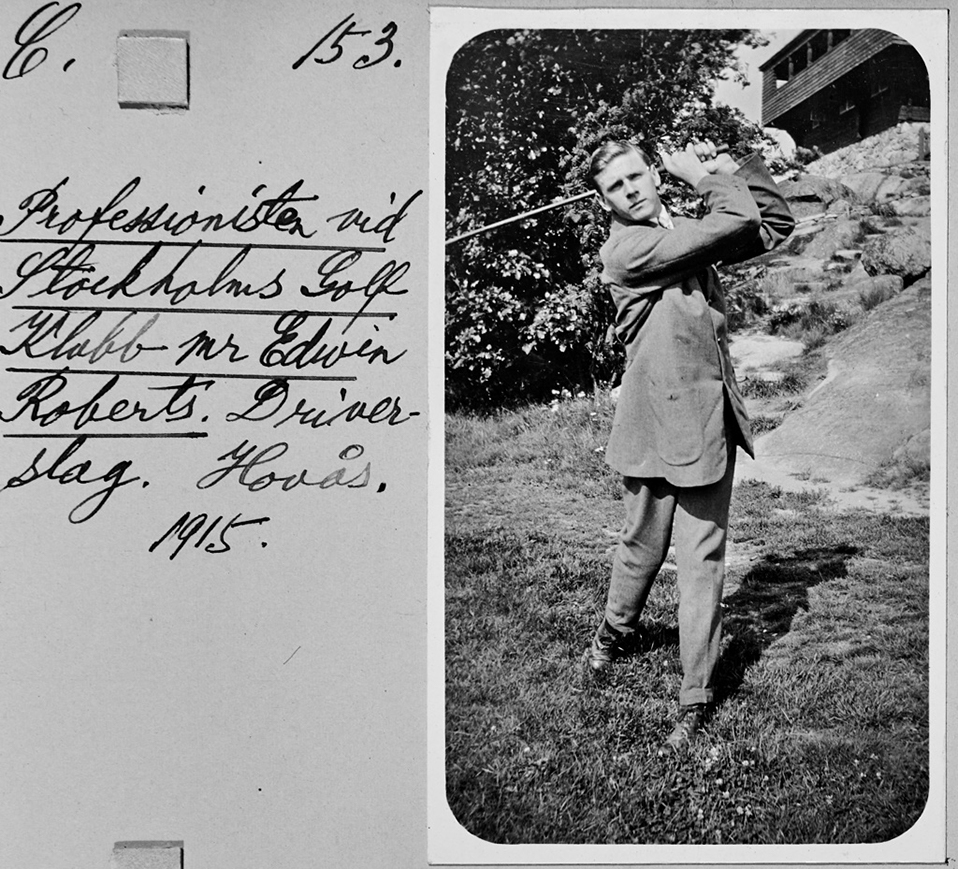 C. 153.
Professionisten vid
Stockholms Golf
Klubb mr Edwin
Roberts. Driver-
slag. Hovås.
1915.